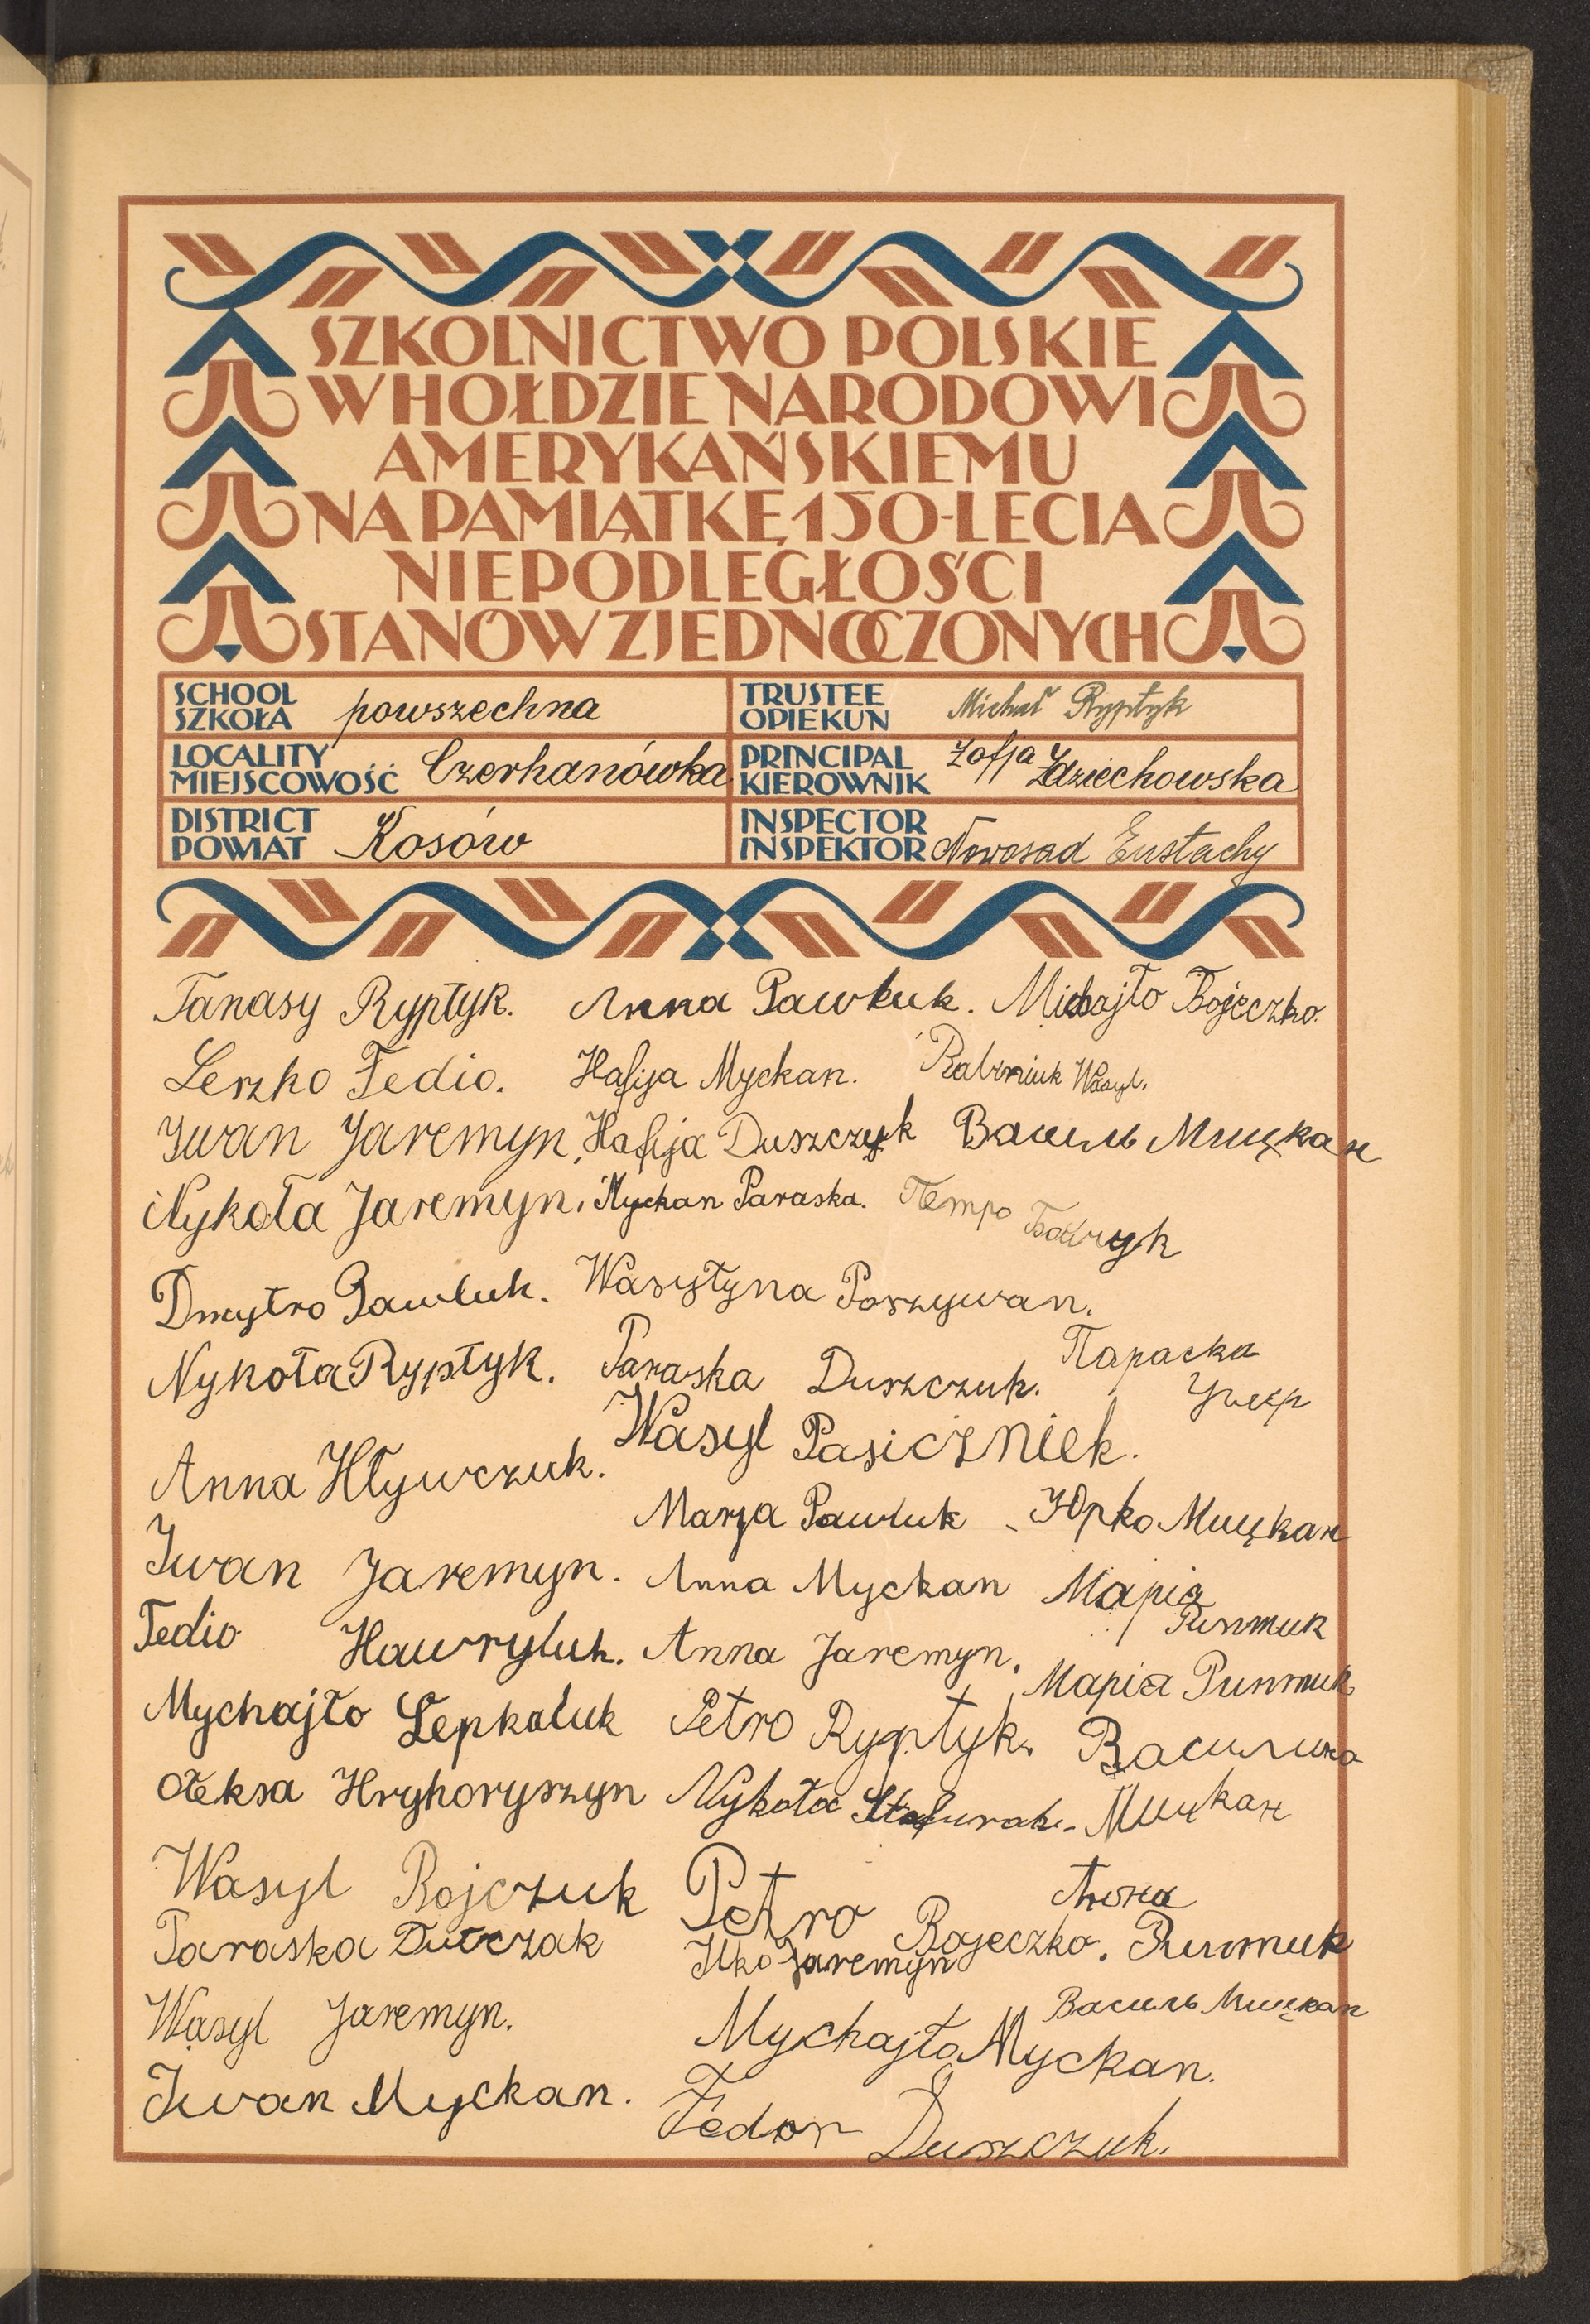 SZKOLNICTWO POLSKIE
W HOŁDZIE NARODOWI
AMERYKAŃSKIEMU
NA PAMIĄTKĘ 150-LECIA
NIEPODLEGŁOŚCI
STANÓW ZJEDNOCZONYCH
SCHOOL
SZKOŁA powszechna
TRUSTEE
OPIEKUN Michał Ryptyk
LOCALITY
MIEJSCOWOŚĆ Czerhanówka
PRINCIPAL
KIEROWNIK Zofja Zdziechowska
DISTRICT
POWIAT Kosów
INSPECTOR
INSPEKTOR Nowosad Eustachy
Tanasy Ryptyk. Anna Pawluk. Michajło Bojeczko.
Leszko Fedio. Hafija Myckan. Wasyl.
Iwan Jaremyn. Hafija Duszczuk Василь Мицкан
Nykoła Jaremyn. Myckan Paraska. Петро
Dmytro Pawluk. Wasyłyna Poszywan.
Nykoła Ryptyk. Paraska Duszczuk. Параска
Anna Hływczuk. Wasyl Pasiczniek.
Marja Pawluk Юрко Мицкан
Iwan Jaremyn. Anna Myckan Марія
Риптик
Fedio Hawryluk. Anna Jaremyn. Марія Риптик
Mychajło Lepkaluk Petro Ryptyk. Василина
Ołeksa Hryhoryszyn Nykoła Stafurak. Мицкан
Wasyl Bojczuk Petro Bojeczko. Анна
Риптик
Paraska Ilko Jaremyn
Wasyl Jaremyn. Василь Мицкан
Mychajło Myckan.
Iwan Myckan. Fedor Duszczuk.